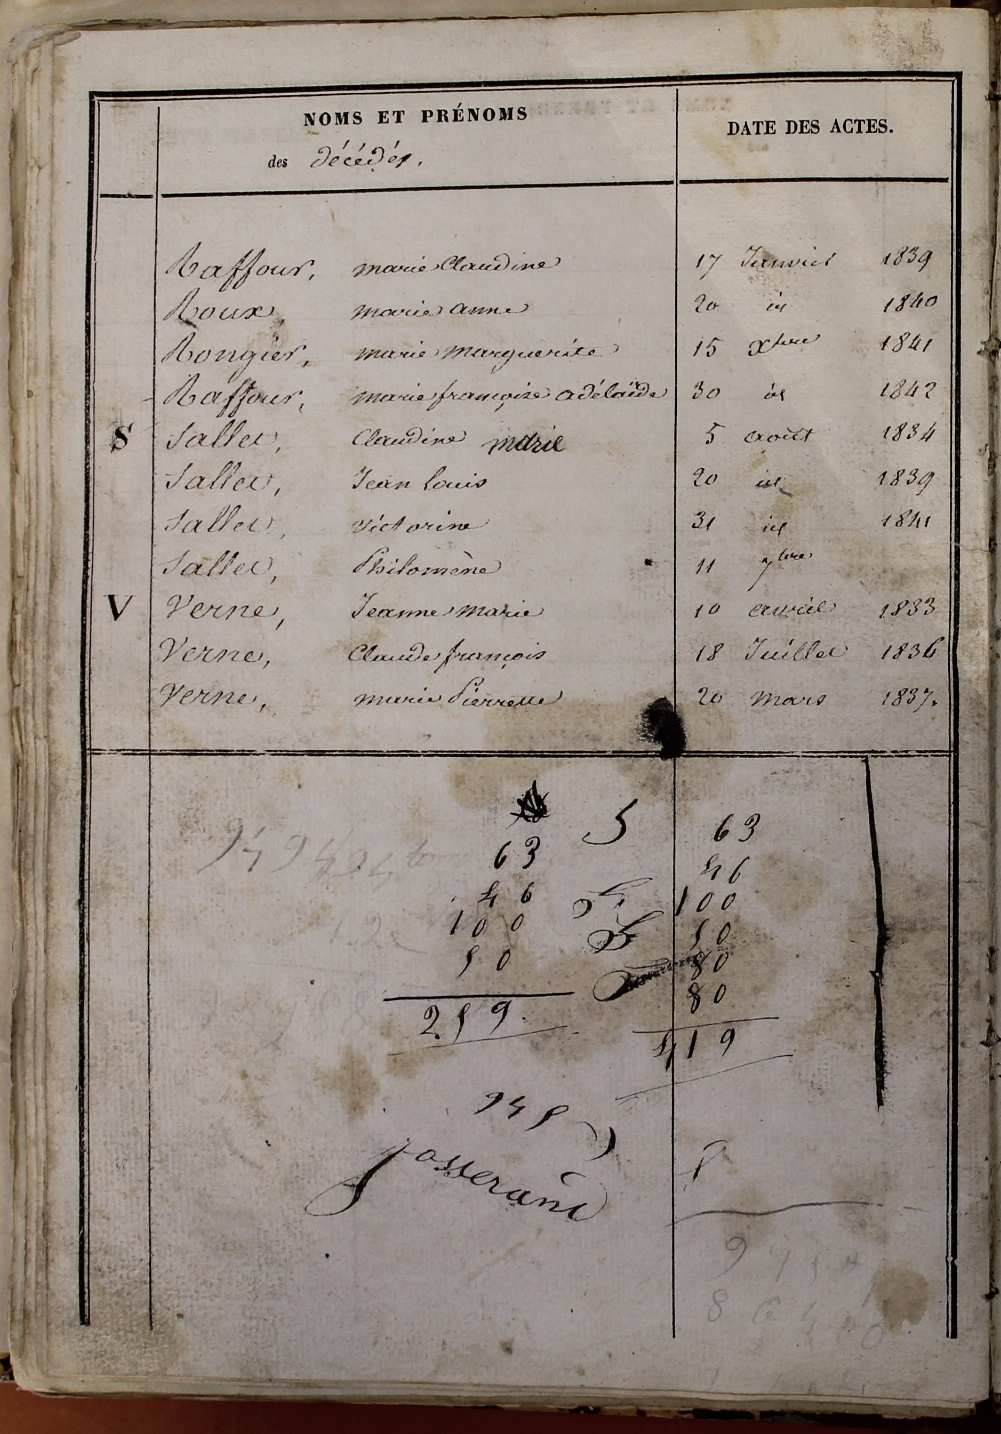 NOMS ET PRÉNOMS
des décédés.
DATE DES ACTES.
Raffour, marie Claudine 17 Janvier 1839
Roux, marie anne 20 id 1840
Rongier, marie marguerite 15 Xbre 1841
Raffour, marie françoise adélaïde 30 id 1842
S Sallet, Claudine marie 5 août 1834
Sallet, Jean Louis 20 id 1839
Sallet, victorine 31 id 1841
Sallet, Philomène 11 7bre
V Verne, Jeanne Marie 10 avril 1833
Verne, Claude françois 18 Juillet 1836
Verne, marie Pierrette 20 Mars 1837.
63
46
100
50
259.
63
46
100
50
80
80
419
945
Josserand